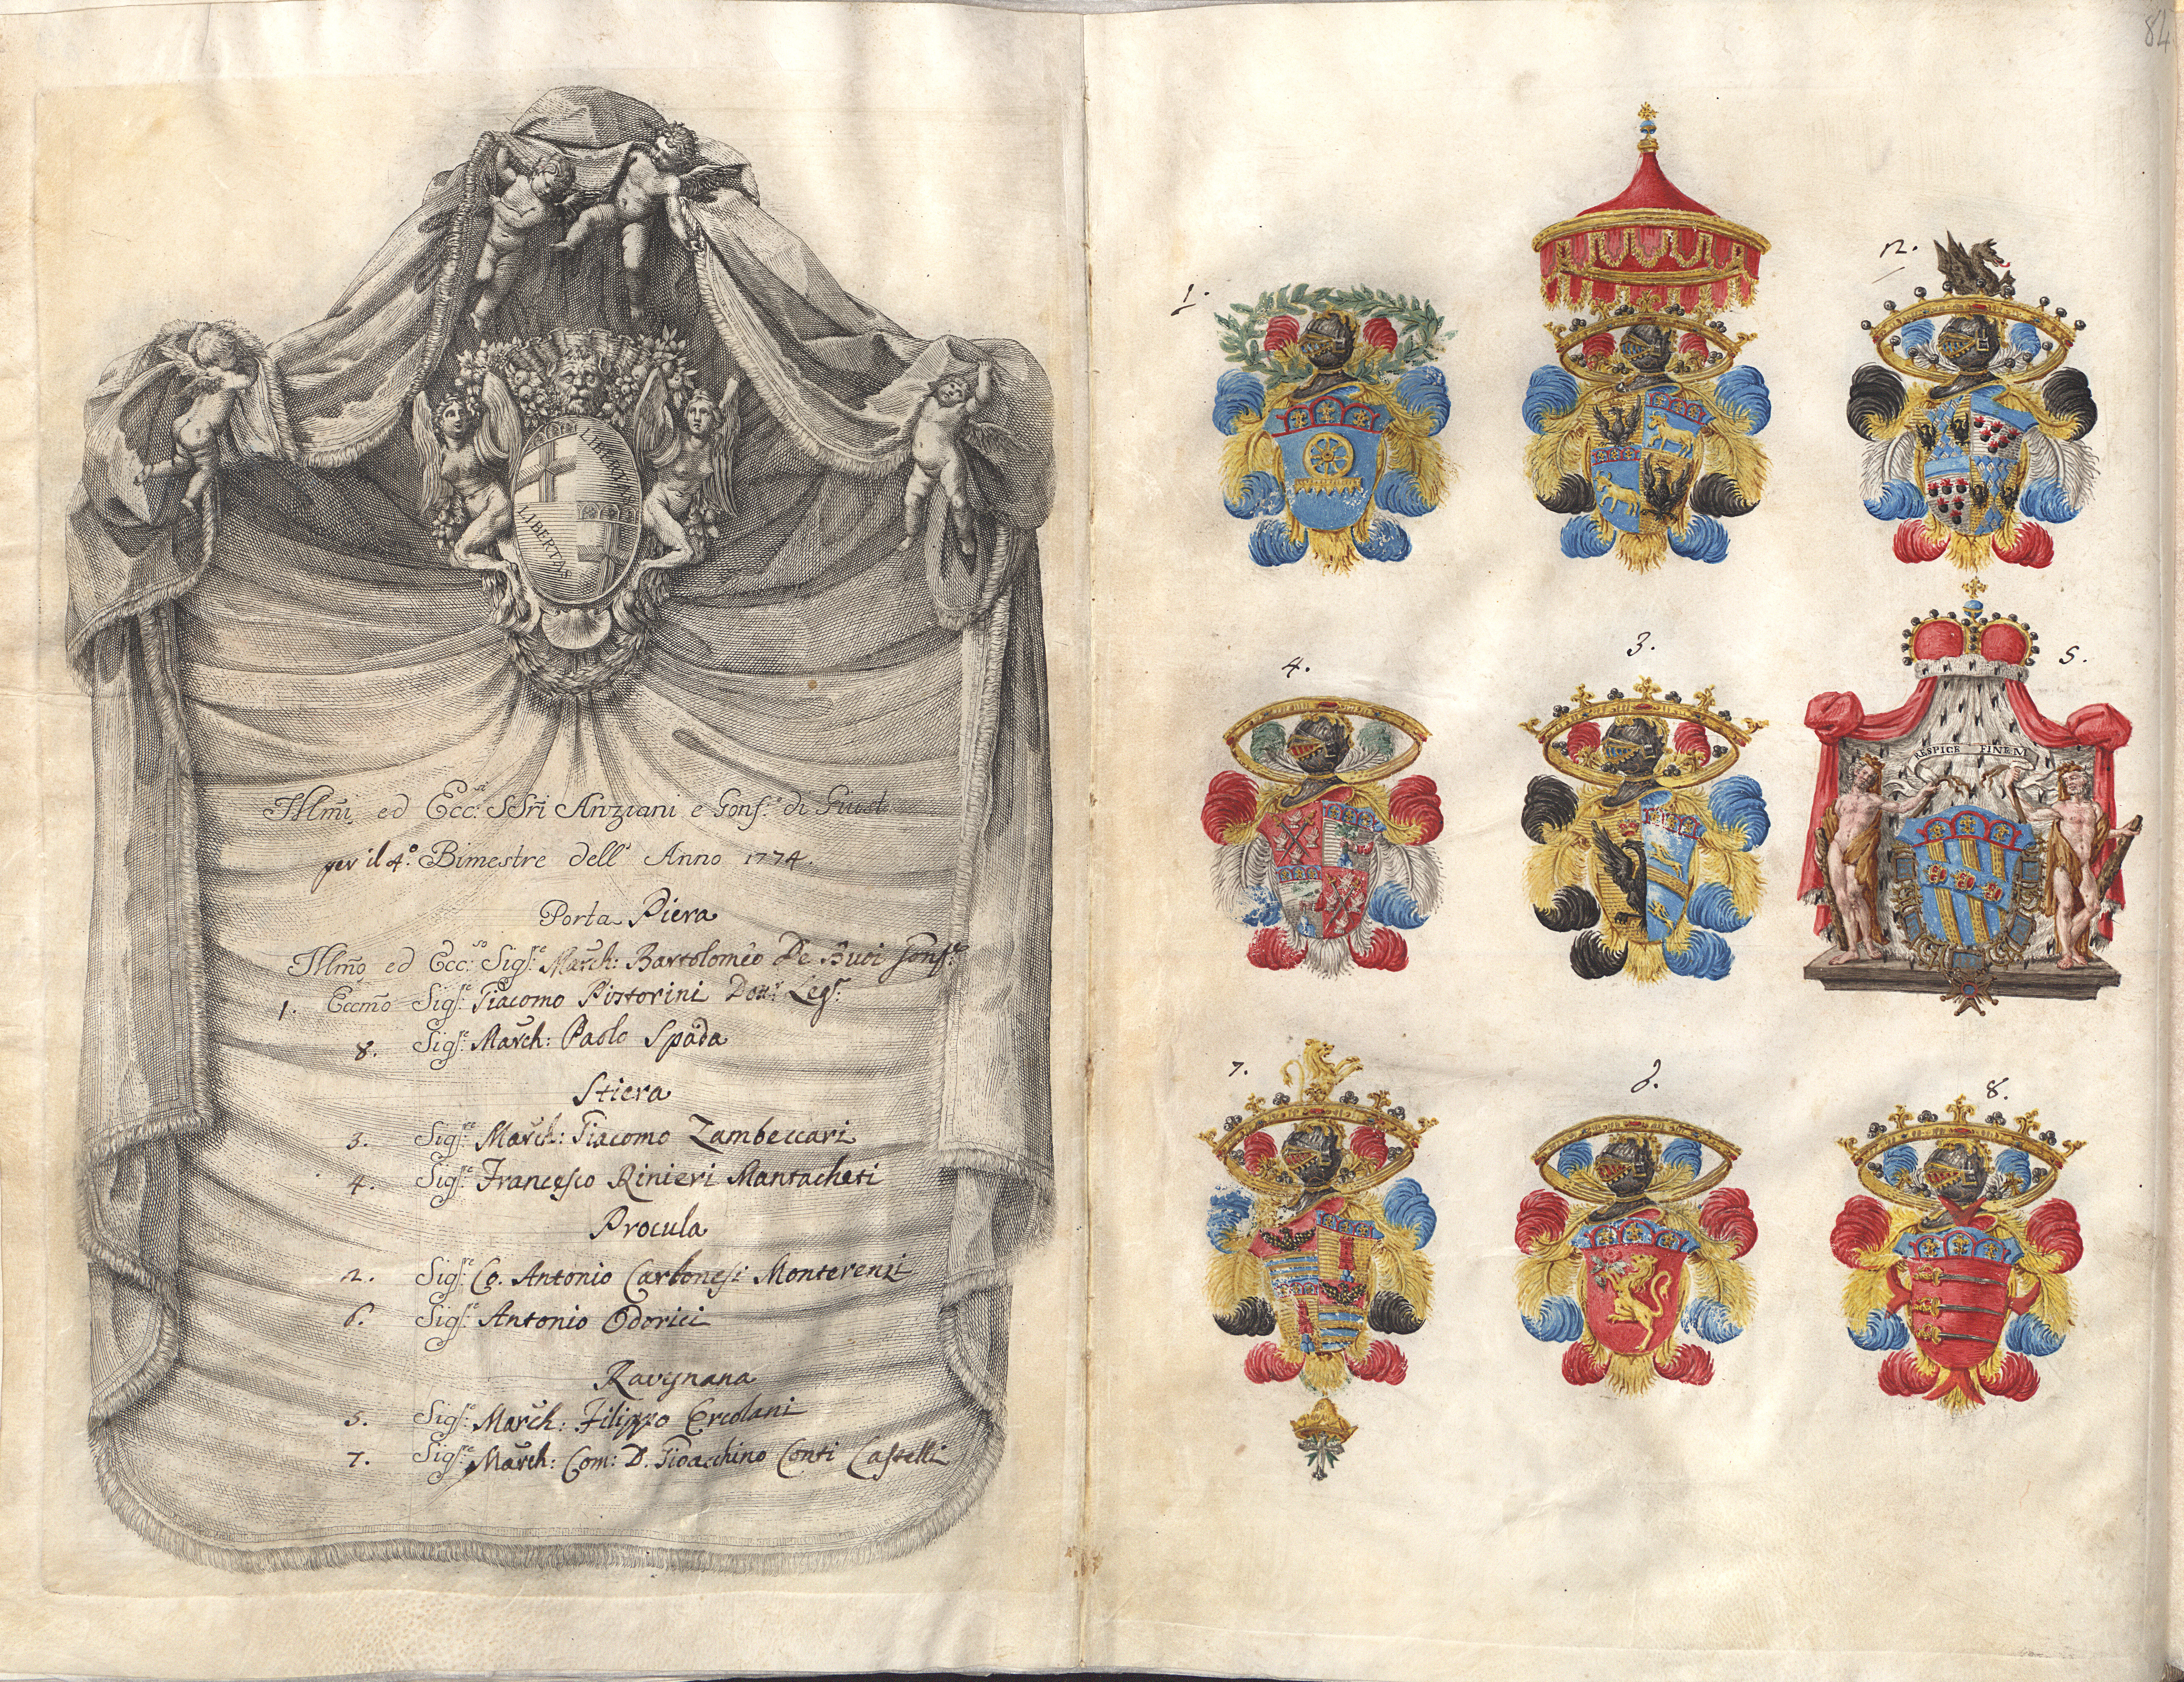 84
LIBERTAS
LIBERTAS
Illm̃i ed Ecc.si SSri Anziani e Gonf.e di Giust
per il 4.º Bimestre dell' Anno 1774.
Porta Piera
Illm̃o ed Ecc.so Sig.re March: Bartolomeo De Buoi Gonf.re
1. Eccmo Sig.re Giacomo Pistorini Dott.r Leg.e
8. Sig.re March: Paolo Spada
Stiera
3. Sig.re March: Giacomo Zambeccari
4. Sig.re Francesco Rinieri Mantacheti
Procula
2. Sig.re Co. Antonio Carbonesi Monterenzi
6. Sig.re Antonio Odorici
Ravgnana
5. Sig.re March: Filippo Ercolani
7. Sig.re March: Com: D. Gioacchino Conti Castelli
1.
2.
4.
3.
5.
RESPICE FINEM
7.
6.
8.